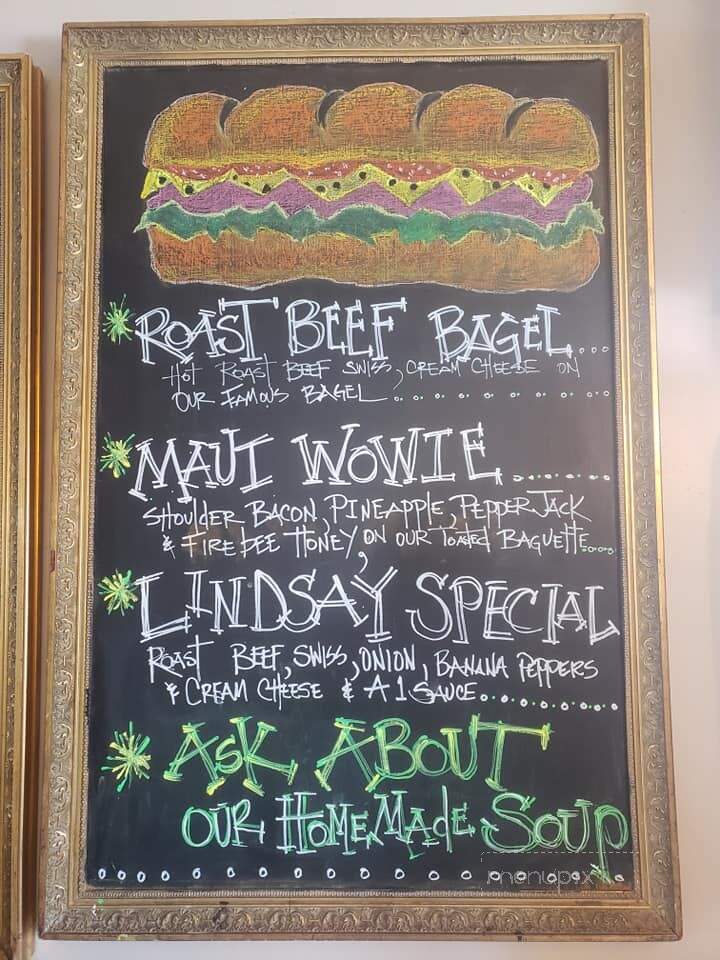 ROAST BEEF BAGEL...
HOT ROAST BEEF SWISS, CREAM CHEESE ON
OUR FAMOUS BAGEL..............
MAUI WOWIE.........
SHOULDER BACON, PINEAPPLE, PEPPER JACK
& FIRE BEE HONEY, ON OUR TOASTED BAGUETTE.....
LINDSAY SPECIAL
ROAST BEEF, SWISS, ONION, BANANA PEPPERS
& CREAM CHEESE & A1 SAUCE.........
ASK ABOUT
OUR HOMEMADE SOUP
menupix